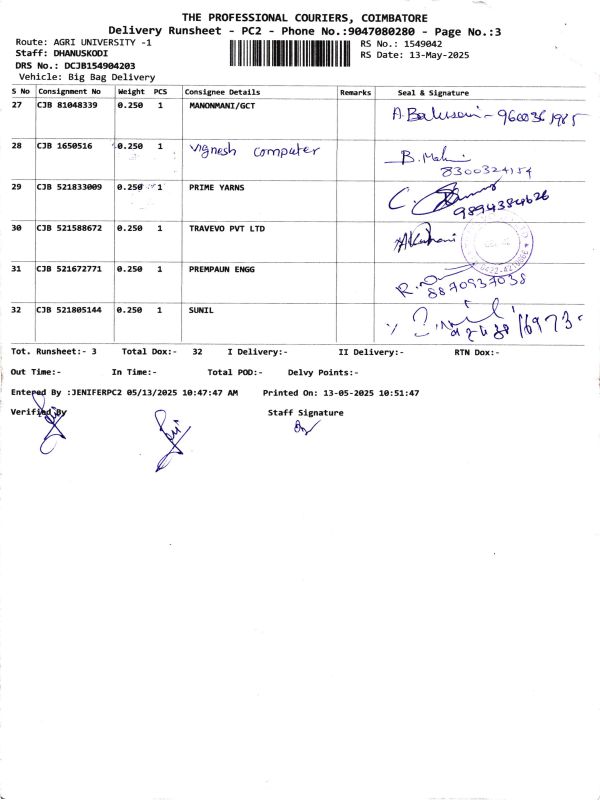 THE PROFESSIONAL COURIERS, COIMBATORE
Delivery Runsheet - PC2 - Phone No.:9047080280 - Page No.:3
Route: AGRI UNIVERSITY -1
RS No.: 1549042
Staff: DHANUSKODI
RS Date: 13-May-2025
DRS No.: DCJB154904203
Vehicle: Big Bag Delivery
S No Consignment No Weight PCS Consignee Details Remarks Seal & Signature
27 CJB 81048339 0.250 1 MANONMANI/GCT
28 CJB 1650516 0.250 1 Vignesh computer B. 8300324154
29 CJB 521833009 0.250 1 PRIME YARNS 9894384626
30 CJB 521588672 0.250 1 TRAVEVO PVT LTD
31 CJB 521672771 0.250 1 PREMPAUN ENGG R. 8870937038
32 CJB 521805144 0.250 1 SUNIL
Tot. Runsheet:- 3 Total Dox:- 32 I Delivery:- II Delivery:- RTN Dox:-
Out Time:- In Time:- Total POD:- Delvy Points:-
Entered By :JENIFERPC2 05/13/2025 10:47:47 AM Printed On: 13-05-2025 10:51:47
Verified By Staff Signature